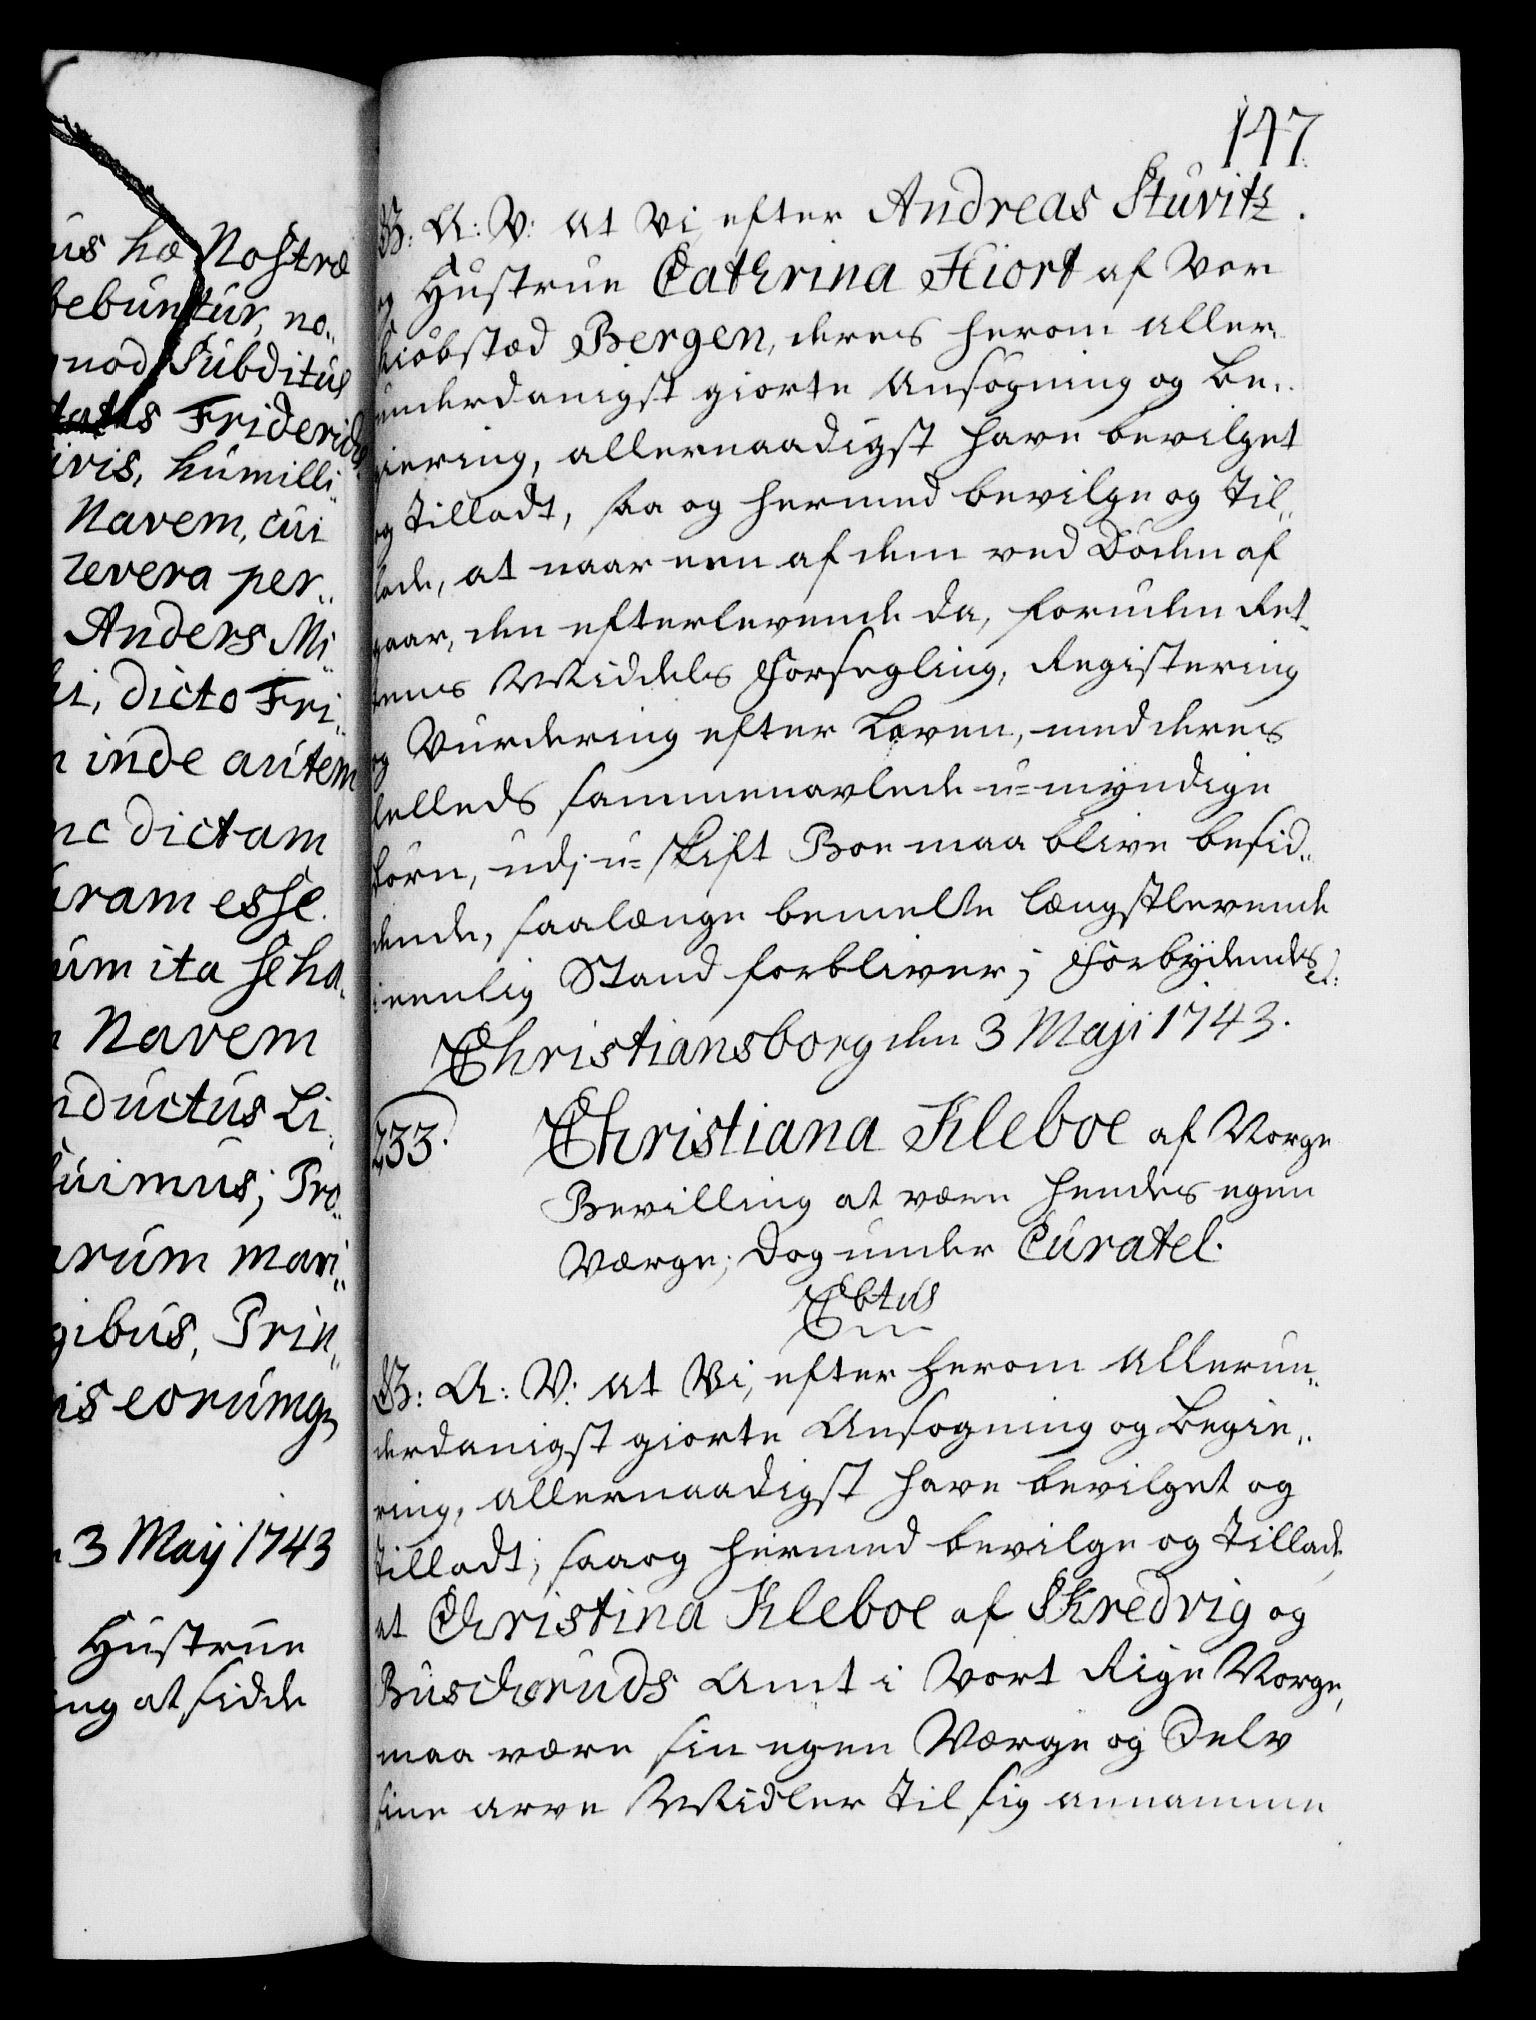 us hæ Nostræ
bebuntur, no„
quod Subditus
Friderich„
ivis, humilli„
Navem, cui
revera per„
Anders Mi„
ki, dicto Fri„
n inde autem
nc dictam
uram esse.
um ita se ha„
n Navem
nductus Li„
buimus; Pro„
arum mari„
gibus, Prin„
is eorumq
3 Maij 1743
Hustrue
ing at sidde
147
G: A: V: at Vi, efter Andreas Stuvitz
og Hustrue Cathrina Hiort af Vor
Kiöbstæd Bergen, deres herom aller„
underdanigst giorte Ansögning og Be„
giering, allernaadigst have bevilget
og tilladt, saa og hermed bevilge og til„
lade, at naar een af dem ved Döden af
gaar, den efterlevende da, foruden Ret„
tens Middels Forsegling, Registering
og Vurdering efter Loven, med deres
felleds sammenavlede u-myndige
Börn, udj u-skift Boe maa blive besid„
dende, saalænge bemelte længstlevende
i eenlig Stand forbliver; Forbydendes etc:
Christiansborg den 3 Maji 1743.
233.
Christiana Kleboe af Norge
Bevilling at være hendes egen
Værge; dog under Curatel.
Gbtus
G: A: V: at Vi, efter herom Allerun„
derdanigst giorte Ansögning og Begie„
ring, allernaadigst have bevilget og
tilladt, saa og hermed bevilge og tillade,
at Christina Kleboe af Skredvig og
Buscheruds Amt i Vort Rige Norge,
maa være sin egen Værge og Selv
sine arve Midler til sig annamme